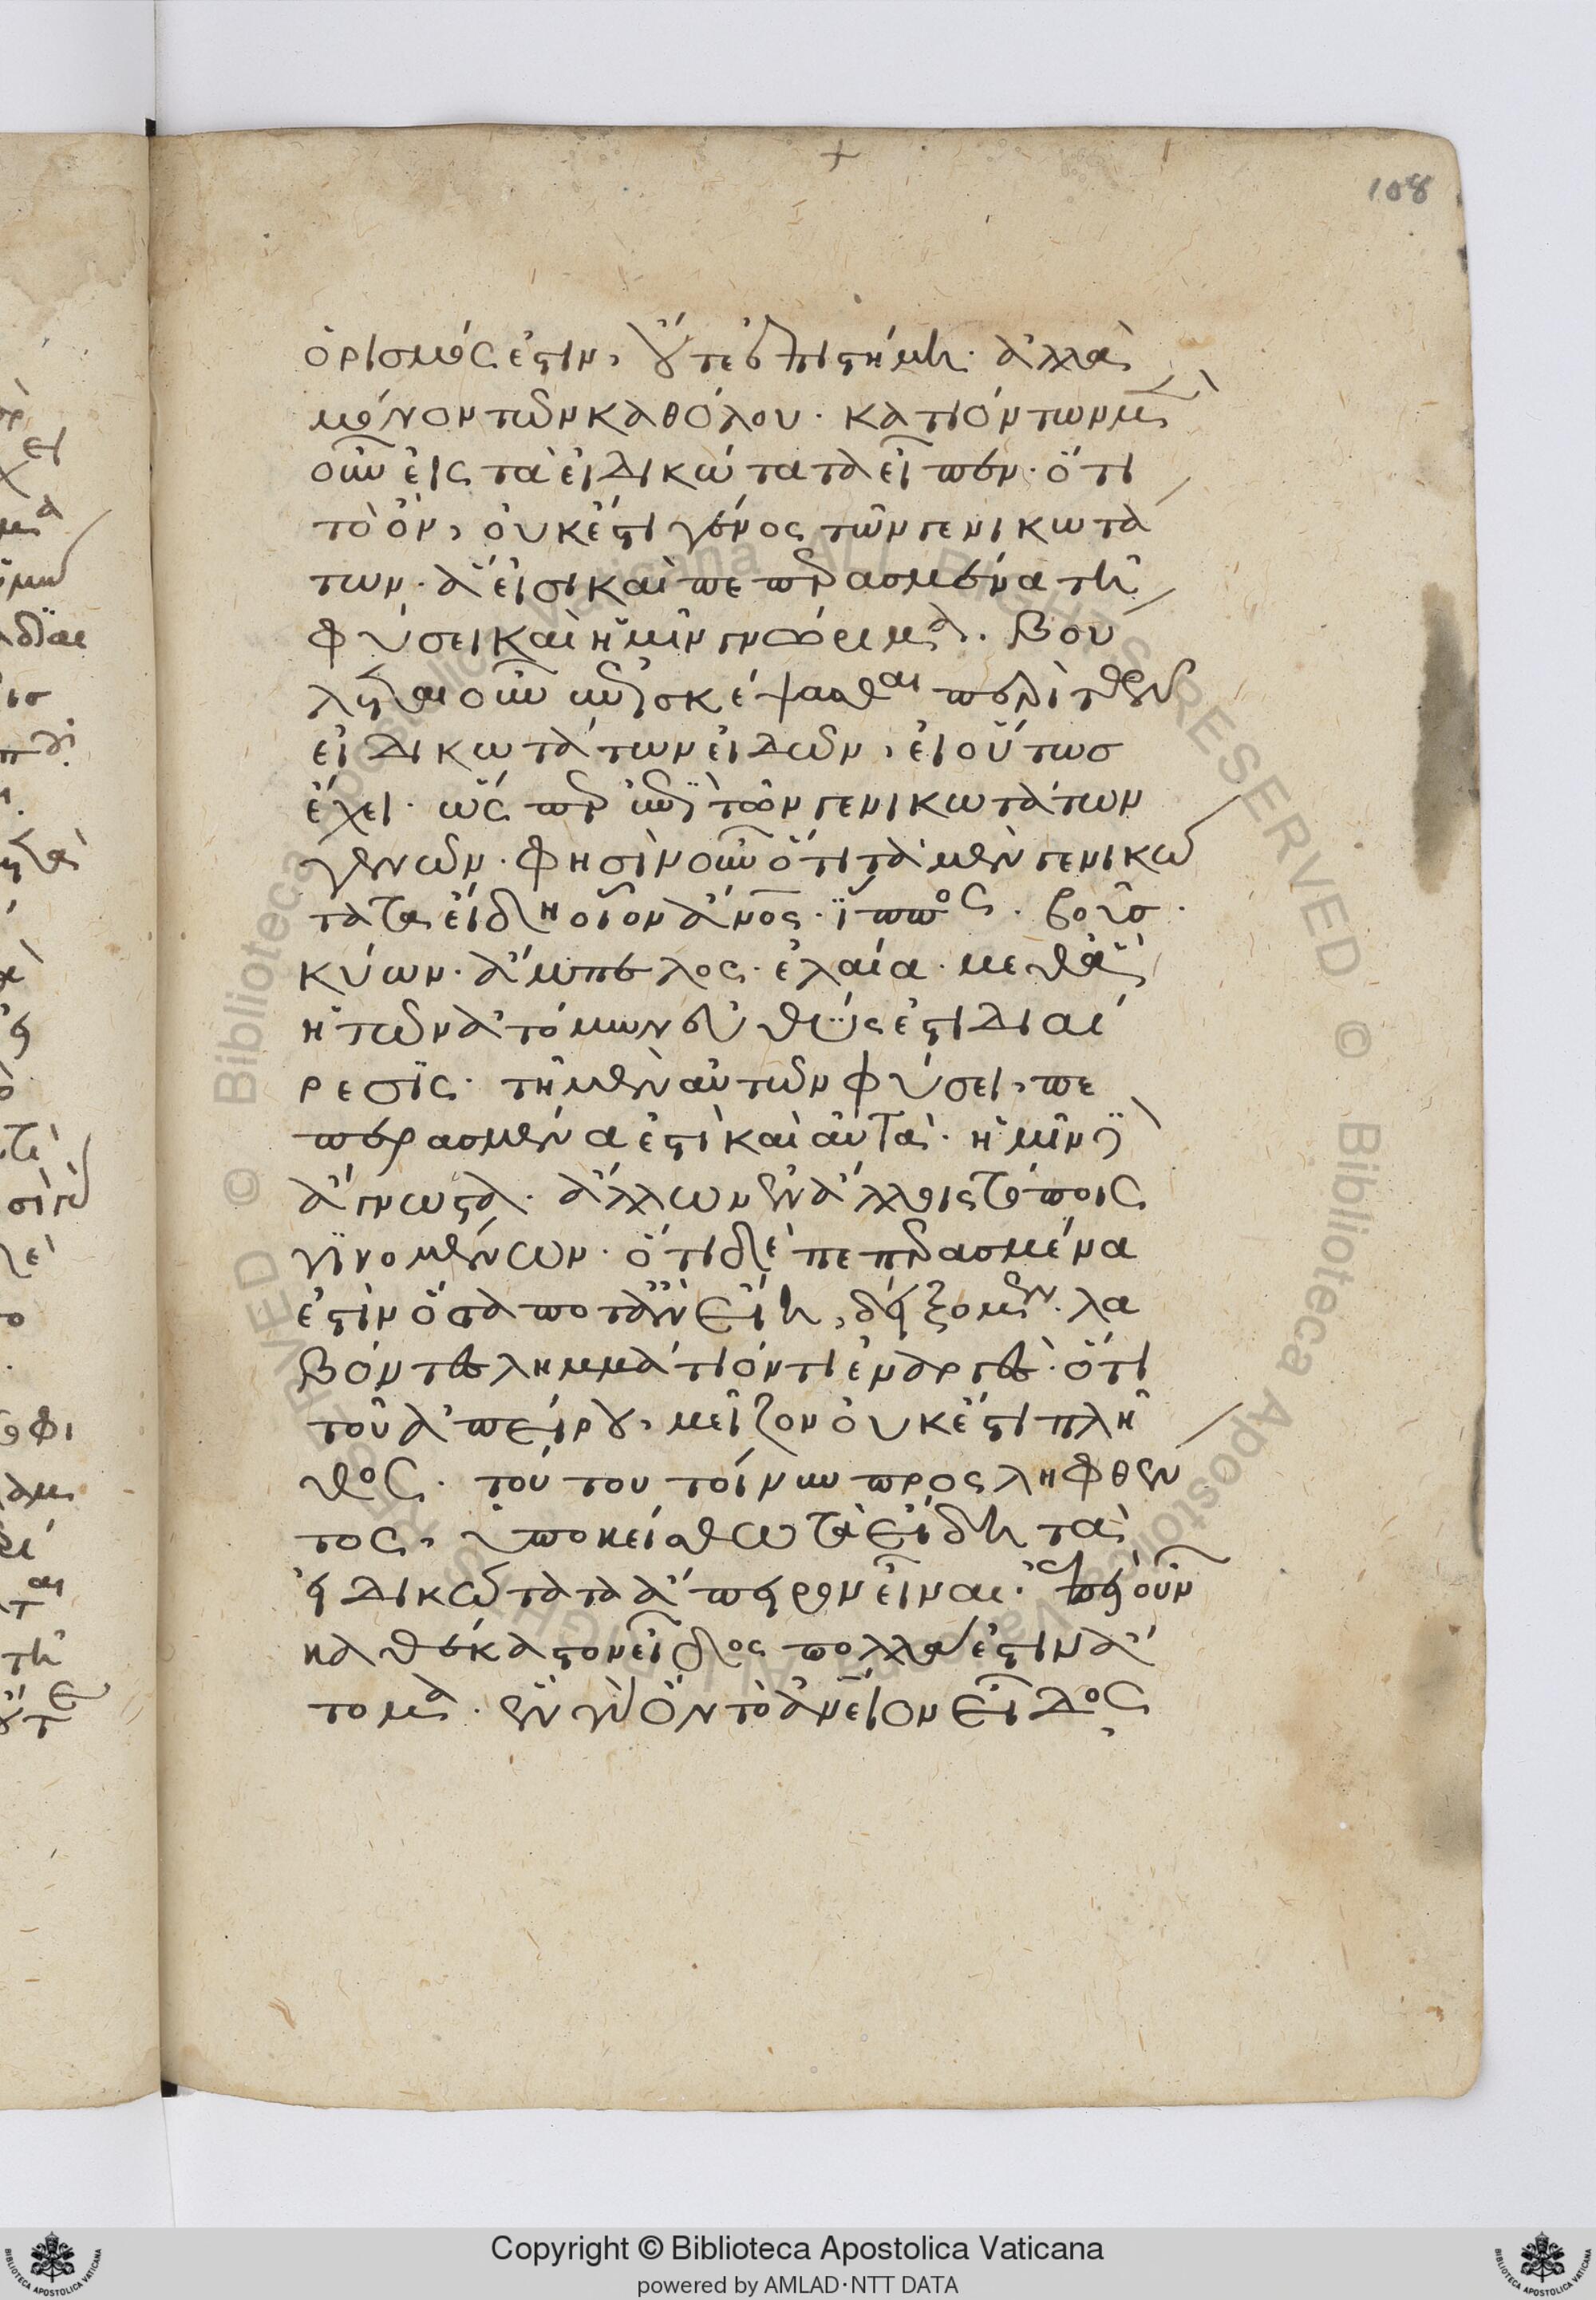 108
ὁρισμός ἐστιν, οὔτε ἐπιστήμη· ἀλλὰ
μόνον τῶν καθόλου· κατιόντων μὲν
οὖν εἰς τὰ εἰδικώτατα εἶπεν· ὅτι
τὸ ὂν, οὐκ ἔστι γένος τῶν γενικωτά
των· ἃ εἰσι καὶ πεπερασμένα τῆ
φύσει καὶ ἡμῖν γνώριμα. βού
λεται οὖν καὶ σκέψασθαι περὶ τῶν
εἰδικωτάτων εἰδῶν, εἰ οὕτως
ἔχει· ὥσπερ καὶ ἐπὶ τῶν γενικωτάτων
γενῶν· φησὶν οὖν ὅτι τὰ μὲν γενικώ
τατα εἴδη οἷον ἄνος· ἵππος· βοῦς·
κύων· ἄμπελος· ἐλαία· μεθ' ἃ
ἡ τῶν ἀτόμων εὐθύς ἐστι διαί
ρεσις· τῆ μὲν αὐτῶν φύσει, πε
περασμένα ἐστὶ καὶ αὐτά· ἡμῖν δὲ
ἄγνωστα· ἄλλων ἐν ἄλλοις τόποις
γινομένων· ὅτι δὲ πεπερασμένα
ἐστὶν ὅσα ποτ' ἂν εἴη, δείξομεν· λα
βόντες λημμάτιόν τι ἐναργές· ὅτι
τοῦ ἀπείρου, μεῖζον οὐκ ἔστι πλῆ
θος· τούτου τοίνυν προσληφθέν
τος, ὑποκείσθω τὰ εἴδη τὰ
εἰδικώτατα ἄπειρον εἶναι· ἐπεὶ οὖν
καθ' ἕκαστον εἶδος πολλά ἐστιν ἄ
τομα· ἓν γὰρ ὂν τὸ ἀνειον εἶδος
Copyright © Biblioteca Apostolica Vaticana
powered by AMLAD·NTT DATA